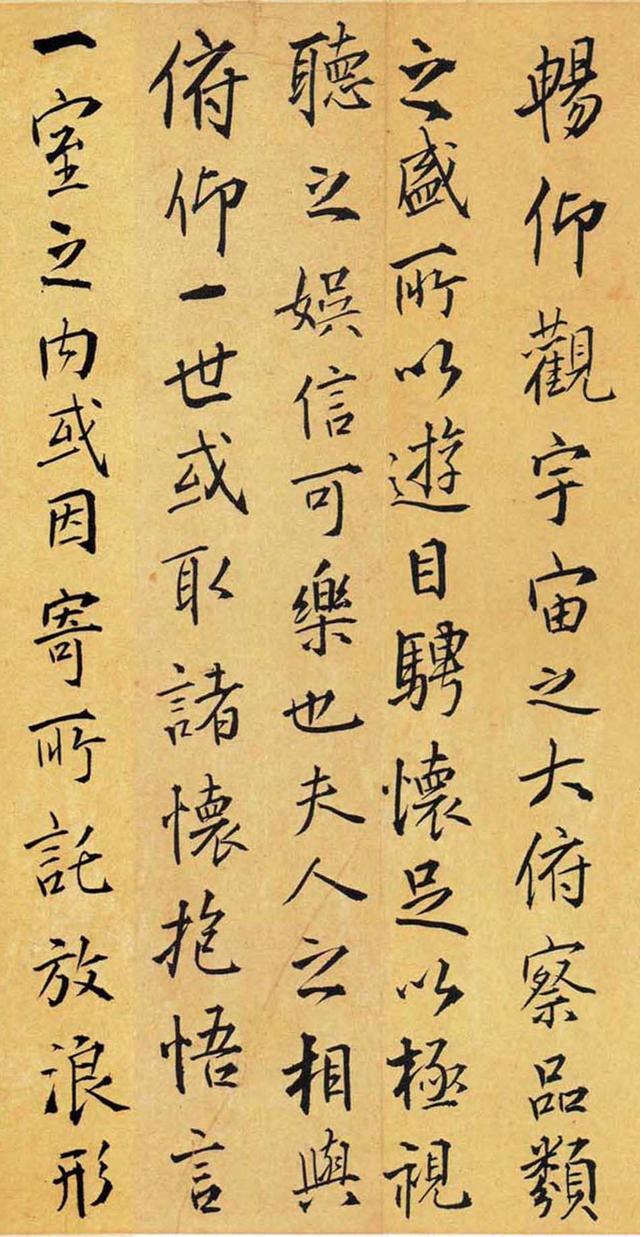 暢仰觀宇宙之大俯察品類
之盛所以遊目騁懷足以極視
聽之娛信可樂也夫人之相與
俯仰一世或取諸懷抱悟言
一室之內或因寄所託放浪形